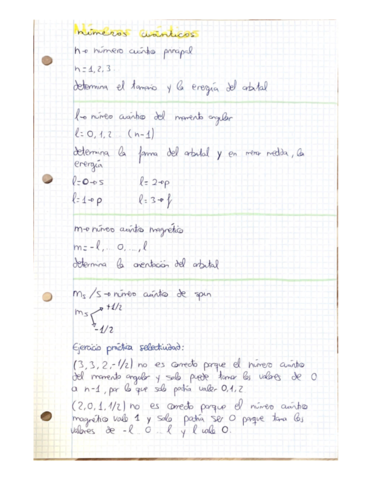 Números cuánticos
n → número cuántico principal
n = 1, 2, 3...
determina el tamaño y la energía del orbital
l → número cuántico del momento angular
l = 0, 1, 2 ... (n-1)
determina la forma del orbital y en menor medida, la
energía
l = 0 → s l = 2 → p
l = 1 → p l = 3 → f
m → número cuántico magnético
m = -l, ... 0, ..., l
determina la orientación del orbital
ms / s → número cuántico de spin
+1/2
ms
-1/2
Ejercicio práctica selectividad:
(3, 3, 2, -1/2) no es correcto porque el número cuántico
del momento angular y solo puede tomar los valores de 0
a n-1, por lo que solo podría valer 0, 1, 2
(2, 0, 1, 1/2) no es correcto porque el número cuántico
magnético vale 1 y solo podría ser 0 porque toma los
valores de -l ... 0 ... l y l vale 0.